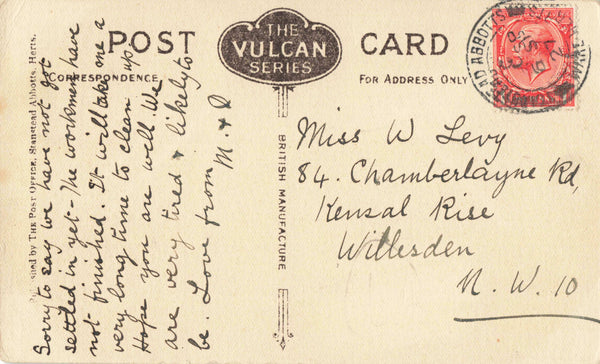 POST CARD
THE
VULCAN
SERIES
CORRESPONDENCE
FOR ADDRESS ONLY
BRITISH MANUFACTURE
Published by THE POST OFFICE, Stanstead Abbotts, Herts.
Sorry to say we have not got
settled in yet - The workmen have
not finished. It will take me a
very long time to clean up.
Hope you are well. We
are very tired & likely to
be. Love from M. &
Miss W Levy
84. Chamberlayne Rd,
Kensal Rise
Willesden
N. W. 10
ABBOTTS